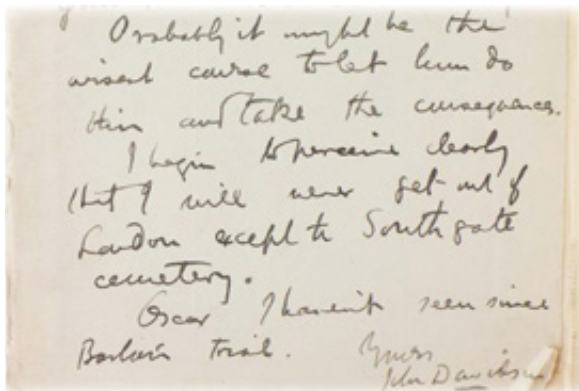 Probably it might be the
wisest course to let him do
this and take the consequences.
I begin to perceive clearly
that I will never get out of
London except to Southgate
cemetery.
Oscar I haven't seen since
trial.
Yours
John Davidson